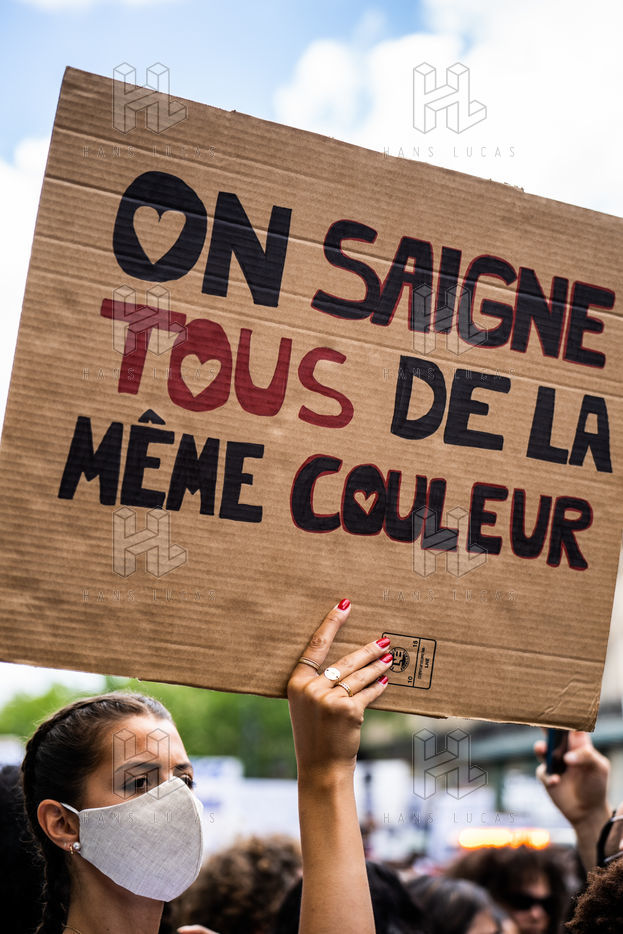 ON SAIGNE
TOUS DE LA
MÊME COULEUR
HL HL
HANS LUCAS HANS LUCAS
HL HL
HANS LUCAS HANS LUCAS
HL HL
HANS LUCAS HANS LUCAS
HL HL
HANS LUCAS HANS LUCAS